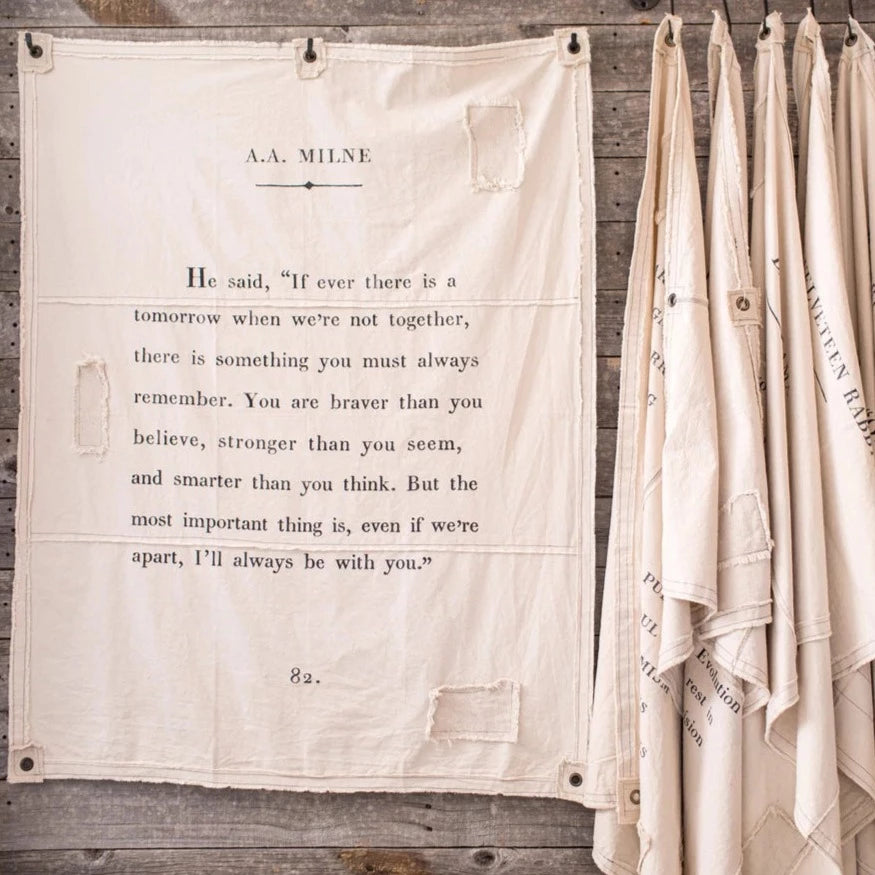 A.A. MILNE
He said, “If ever there is a
tomorrow when we’re not together,
there is something you must always
remember. You are braver than you
believe, stronger than you seem,
and smarter than you think. But the
most important thing is, even if we’re
apart, I’ll always be with you.”
82.
Evolution
rest in